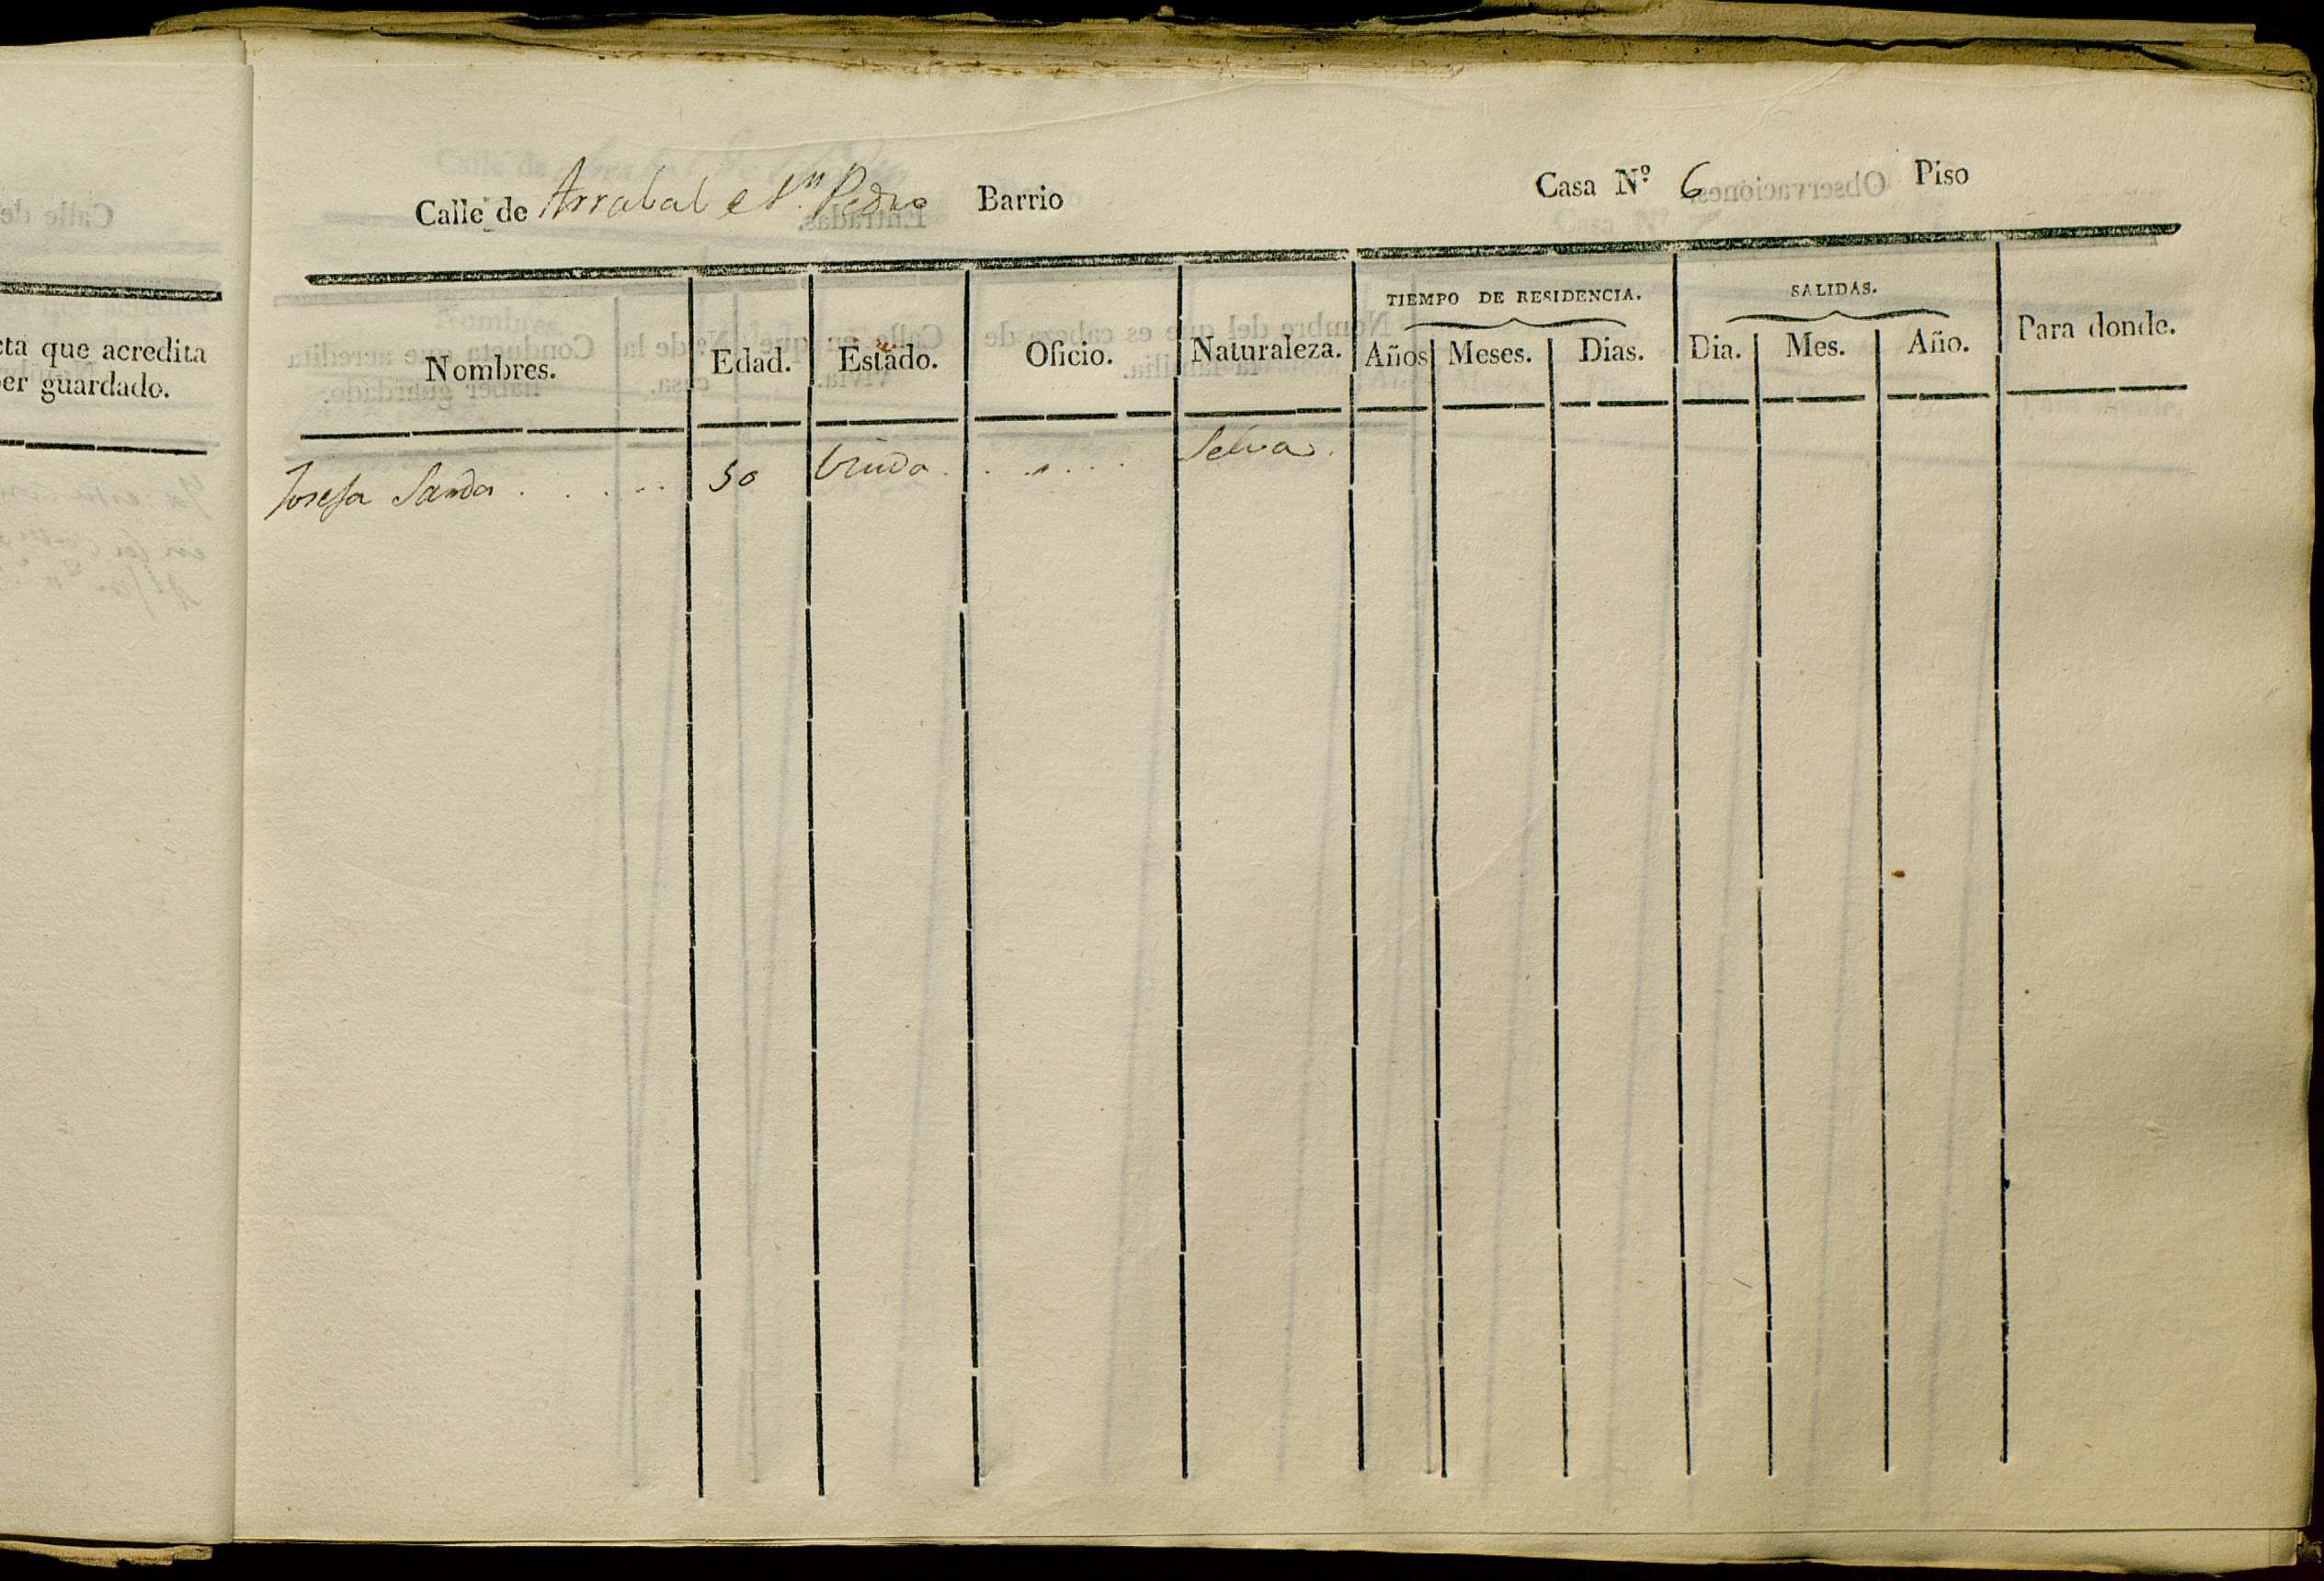 Calle de Arrabal e Sn. Pedro Barrio Casa Nº 6 Piso
cta que acredita
er guardado.
TIEMPO DE RESIDENCIA. SALIDAS.
Nombres. Edad. Estado. Oficio. Naturaleza. Años Meses. Dias. Dia. Mes. Año. Para donde.
Josefa Sarda . . . . . 50 Viuda . . . . . Selva .